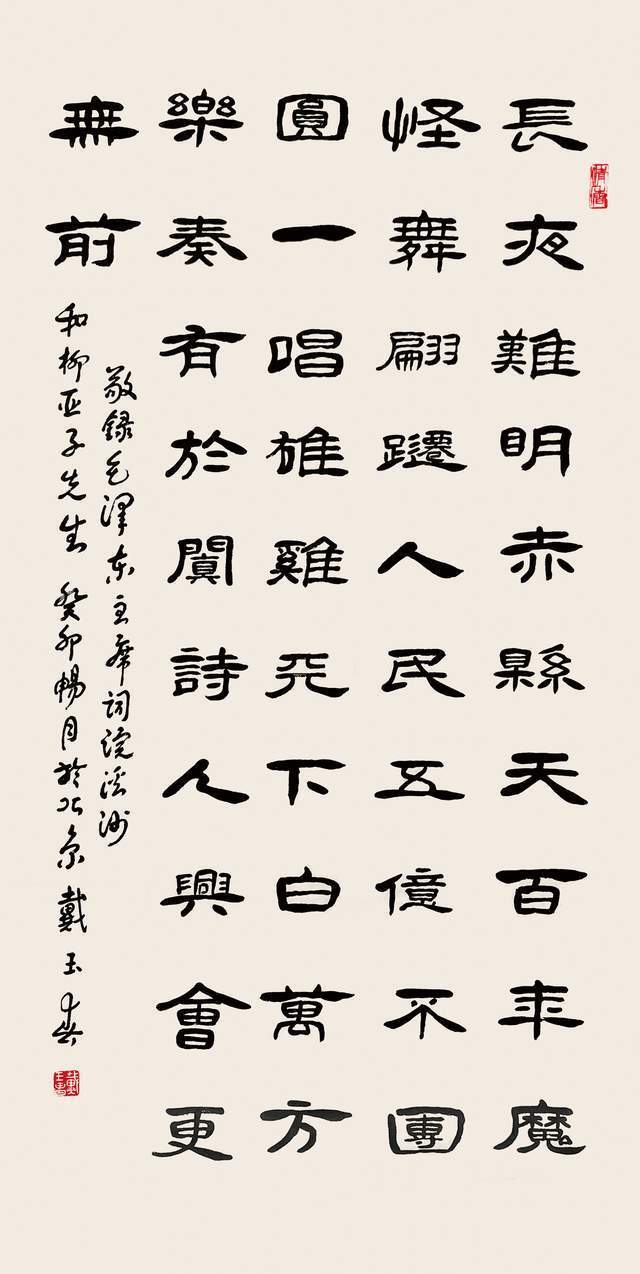 長夜難明赤縣天百年魔
怪舞翩躚人民五億不團
圓一唱雄雞天下白萬方
樂奏有於闐詩人興會更
無前
敬録毛澤东主席词浣溪沙
和柳亚子先生 癸卯暢月於北京 戴玉